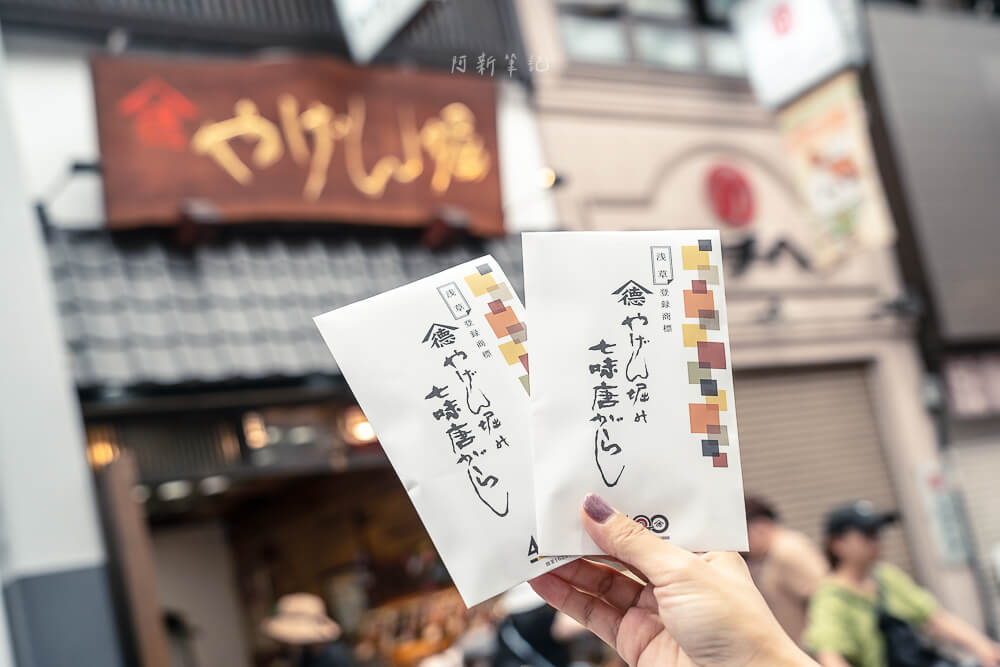 阿新筆記
やげん堀
浅草
登録商標
德やげん堀の
七味唐がらし
浅草
登録商標
德やげん堀の
七味唐がらし